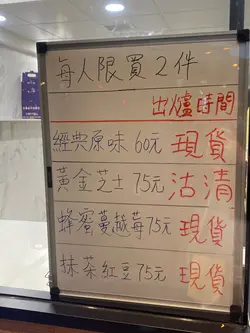 每人限買2件
出爐時間
經典原味 60元 現貨
黃金芝士 75元 沽清
蜂蜜蔓越莓75元 現貨
抹茶紅豆75元 現貨